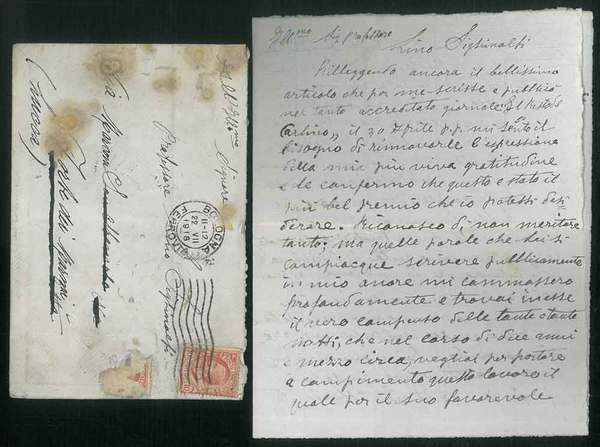 Ill.mo Sig. Professore
Lino Sighinolfi
Rileggendo ancora il bellissimo
articolo che per me scrisse e pubblicò
nel tanto accreditato giornale: "Il Resto del
Carlino", il 30 Aprile p.p. mi sento il
bisogno di rinnovarle l'espressione
della mia più viva gratitudine
e le confermo che questo è stato il
più bel premio che io potessi desi-
derare. Riconosco di non meritare
tanto; ma quelle parole che Lei si
compiacque scrivere pubblicamente
in mio onore mi commossero
profondamente e trovai in esse
il vero compenso delle tante e tante
notti, che nel corso di due anni
e mezzo circa, vegliai per portare
a compimento questo lavoro il
quale per il suo favorevole
All'Ill.mo Signore
Professore
Lino Sighinolfi
Via
BOLOGNA
11-12
22 VII
1916
FERROVIA